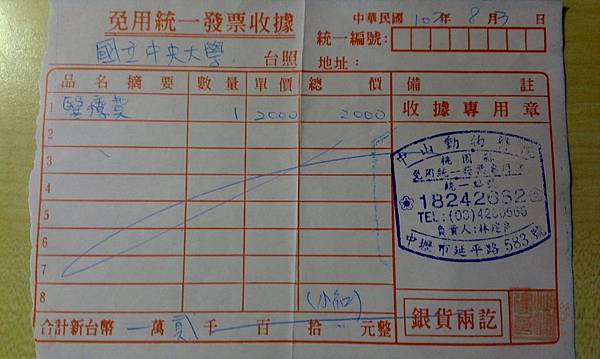 免用統一發票收據
中華民國 102年 8月 3日
國立中央大學 台照
統一編號:
地址:
品名摘要 數量 單價 總價 備註
1 醫療費 1 2000 2000
收據專用章
2
3
4
5
6
7
8
中山動物醫院
桃園縣
免用統一發票專用章
統一編號
18242662
TEL:(03)4266666
負責人:林
中壢市延平路583號
合計新台幣 萬 貳 千 百 拾 元整
銀貨兩訖